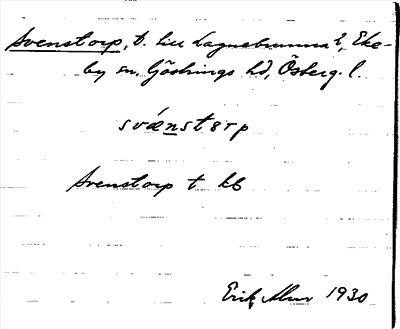 Svenstorp, t. till Lagnebrunna h, Eke-
by sn, Göstrings hd, Österg. l.
svänstərp
Svenstorp t kb
Erik Alm 1930